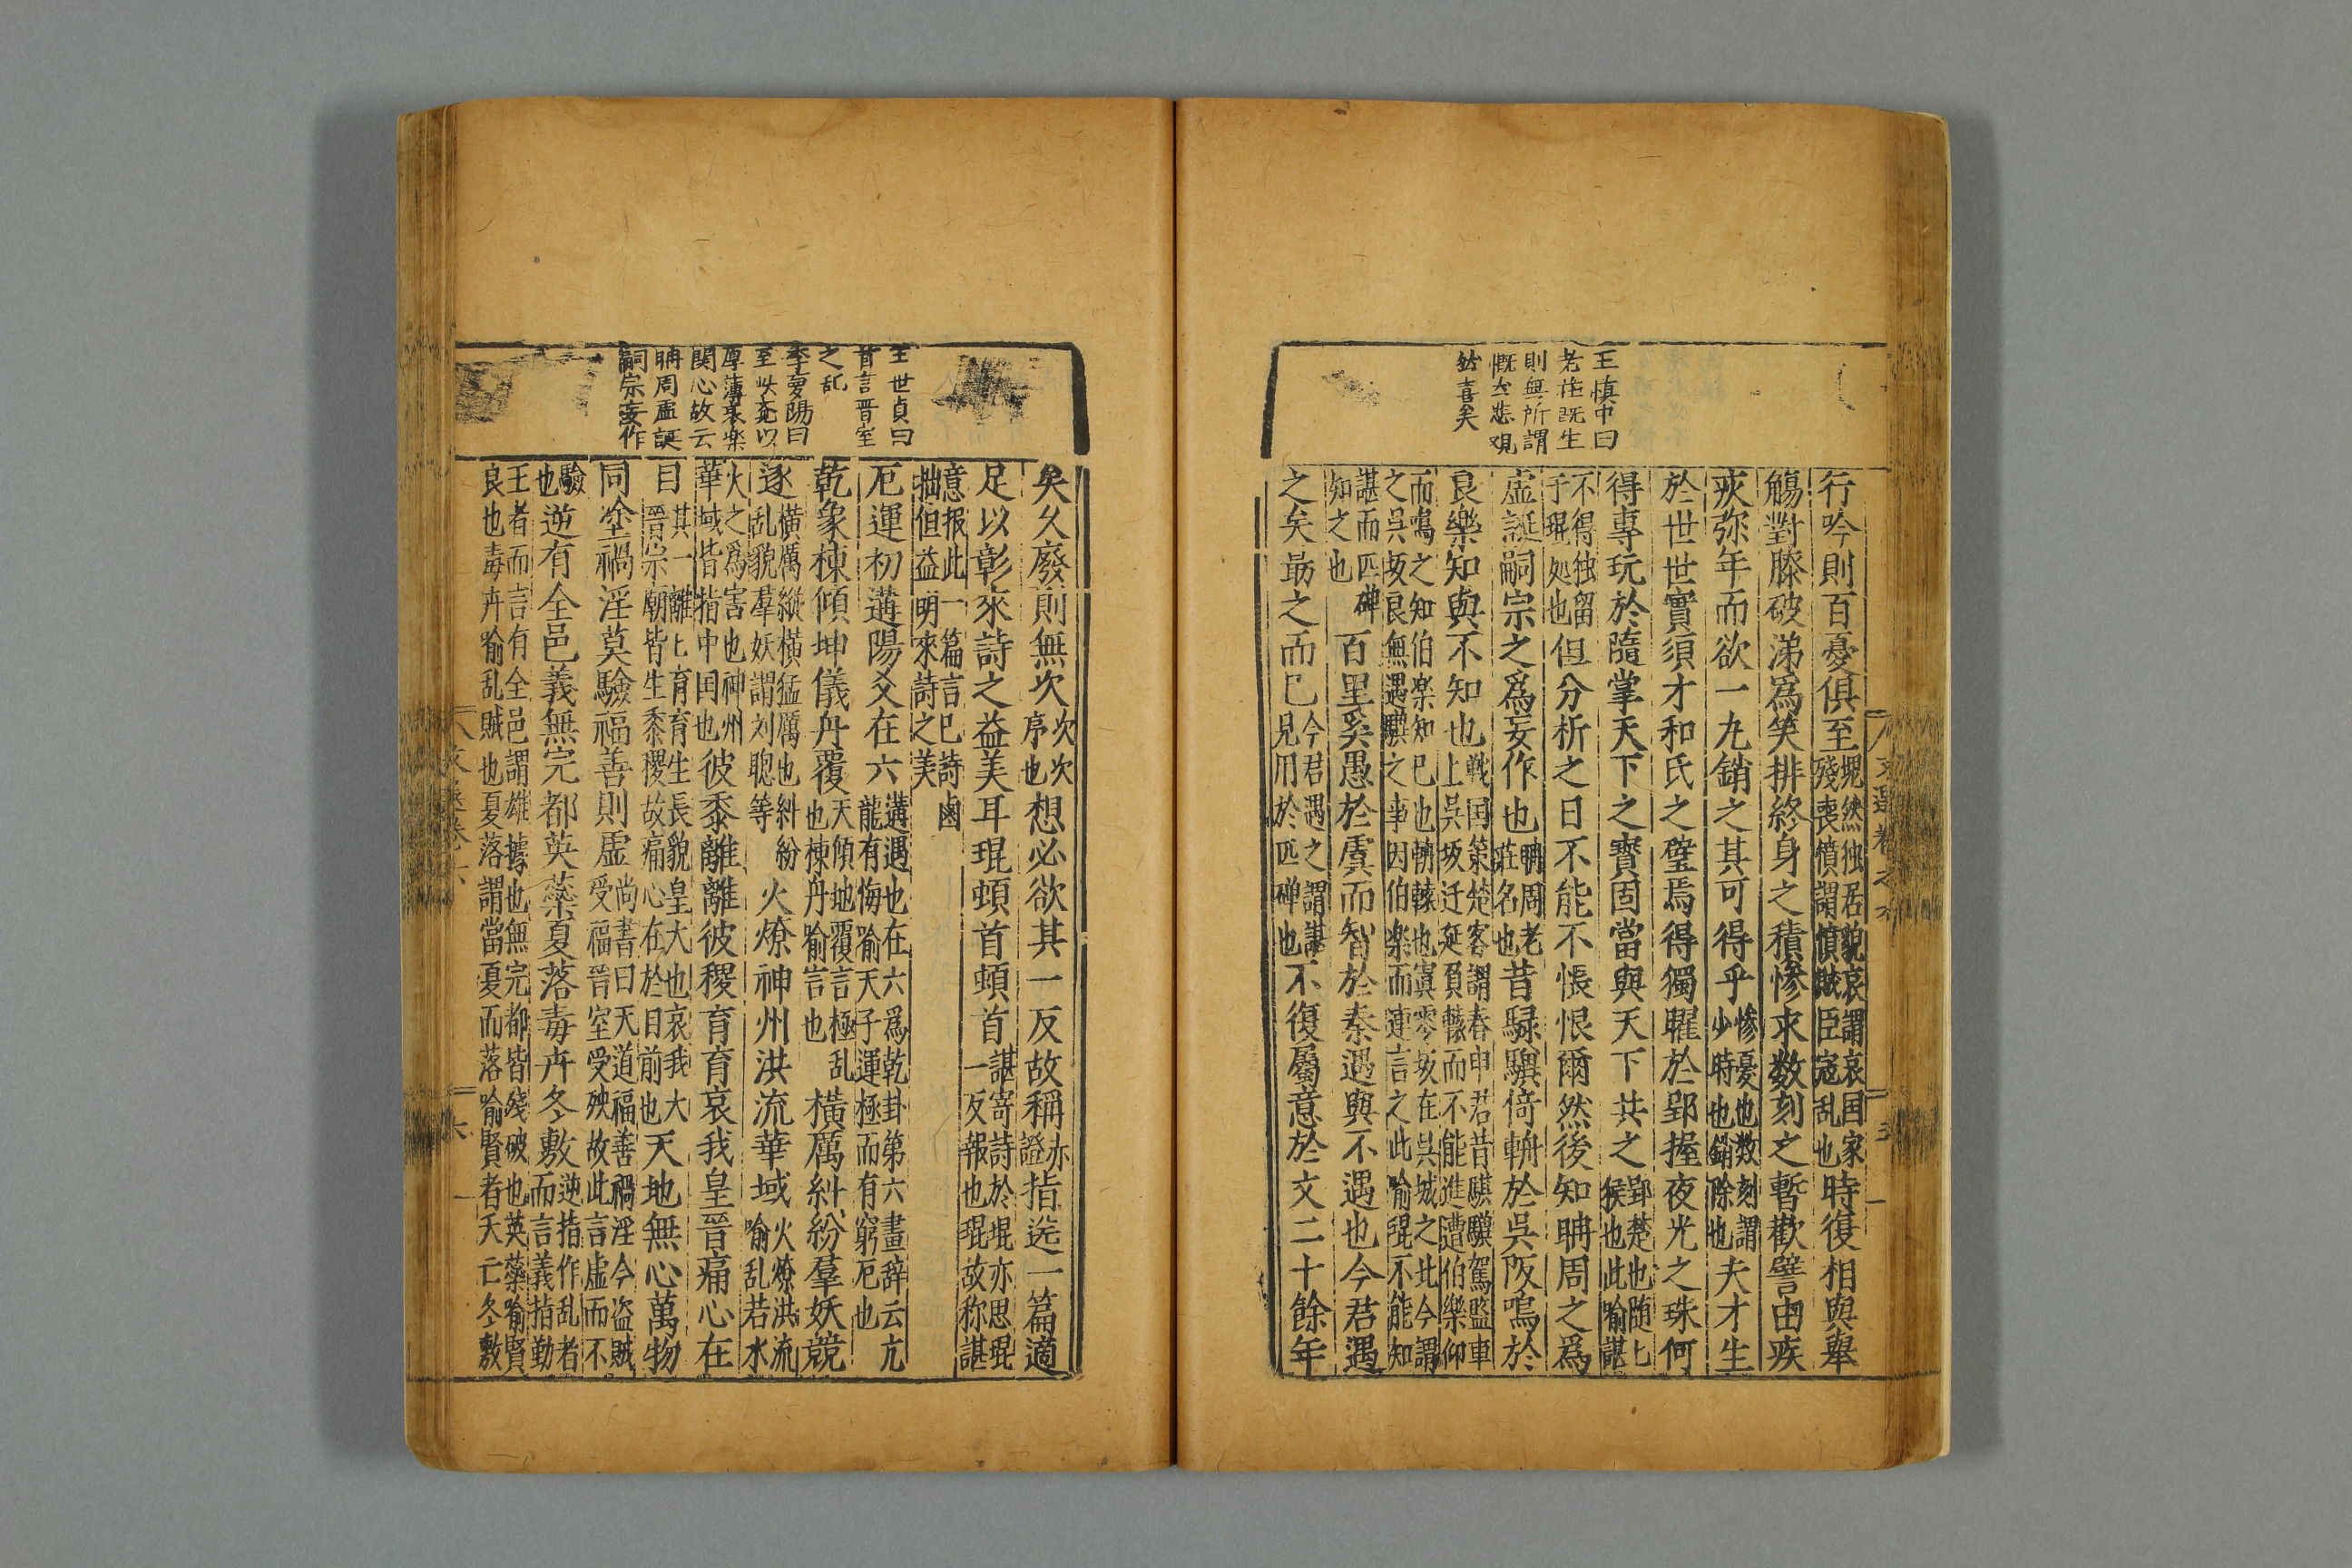 王慎中曰
老莊既生
則無所謂
慨世悲覌
然喜矣
行吟則百憂俱至塊然独居貌哀謂哀国家殘喪憤謂憤賊臣寇乱也時復相與舉
觴對膝破涕爲笑排終身之積惨求数刻之暫歡譬由疾
疢弥年而欲一丸銷之其可得乎惨憂也数刻謂少時也銷除也夫才生
於世世實須才和氏之璧焉得獨曜於郢握夜光之珠何
得專玩於隨掌天下之寳固當與天下共之郢楚也随匕侯也此喻諶
不得独留于琨処也但分析之日不能不悵恨爾然後知聃周之爲
虚誕嗣宗之爲妄作也聃周老莊名也昔騄驥倚輈於吳阪鳴於
良樂知與不知也戦国策楚客謂春申君昔騏驥駕盬車上吳坂迁延負轅而不能進遭伯樂仰
而鳴之知伯楽知巳也輈轅也寘零坂在吳城之北今謂之吳坂良無遇驥之事因伯楽而連言之此喻琨不能知
諶而匹磾知之也百里奚愚於虞而智於秦遇與不遇也今君遇
之矣勗之而巳今君遇之謂諶見用於匹磾也不復屬意於文二十餘年
王世貞曰
首言晋室
之乱
李夢陽曰
至此竟以
厚薄哀楽
関心故云
聃周虚誕
嗣宗妄作
矣久廢則無次次次序也想必欲其一反故稱亦證指送一篇適
足以彰來詩之益美耳琨頓首頓首諶寄詩於琨亦思琨一反報也琨故称諶
意报此一篇言巳詩鹵拙但益明來詩之美
厄運初遘陽爻在六遘遇也在六爲乾卦第六畫辞云亢龍有悔喻天子運極而有窮厄也
乾象棟傾坤儀舟覆天傾地覆言極乱也棟舟喻言也橫厲糾紛羣妖競
逐橫厲縱橫猛厲也糾紛乱貌羣妖謂刘聰等火燎神州洪流華域火燎洪流喻乱若水
火之爲害也神州華域皆指中国也彼黍離離彼稷育育哀我皇晋痛心在
目其一離匕育育生長貌皇大也哀我大晋宗廟皆生黍稷故痛心在於目前也天地無心萬物
同塗禍淫莫驗福善則虚尚書曰天道福善禍淫今盗賊受福晋室受殃故此言虚而不
驗也逆有全邑義無完都英蘂夏落毒卉冬敷逆指作乱者而言義指勤
王者而言有全邑謂雄據也無完都皆殘破也英蘂喻賢良也毒卉喻乱賊也夏落謂當憂而落喻賢者夭亡冬敷